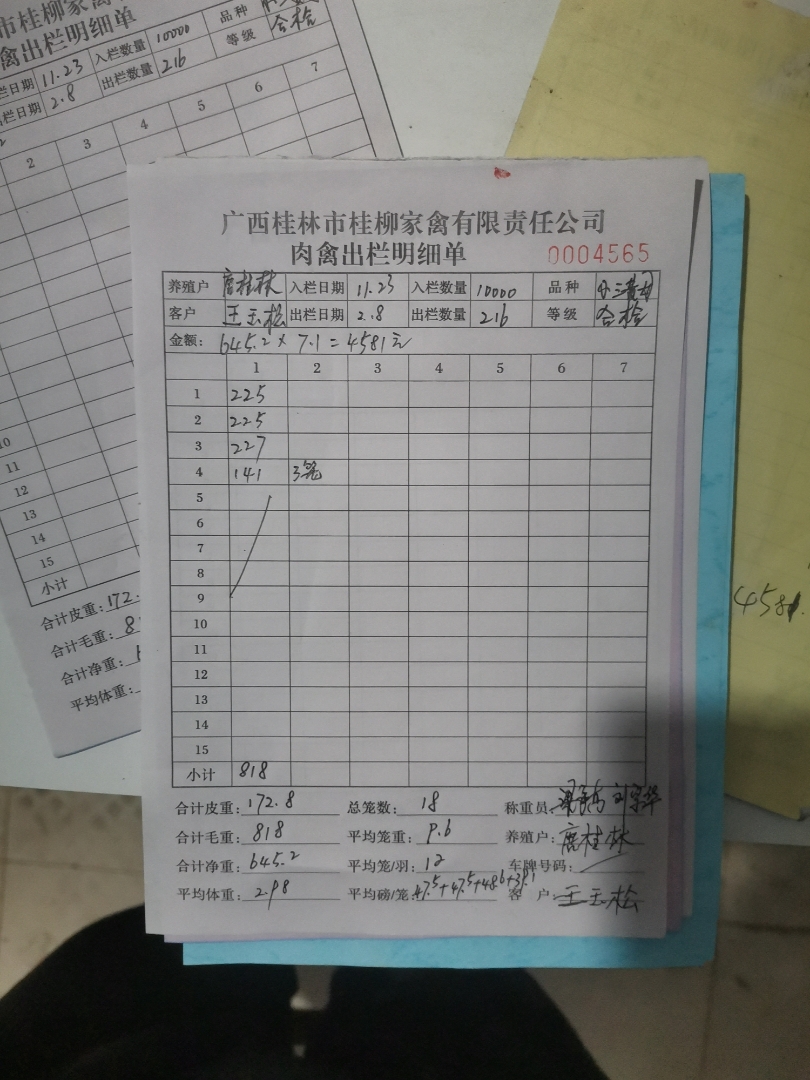 市桂柳家禽
禽出栏明细单
栏日期 11.23 入栏数量 10000 品种
栏日期 2.8 出栏数量 216 等级 合检
2 3 4 5 6 7
10
11
12
13
14
15
小计
合计皮重: 172.
合计毛重: 8
合计净重:
平均体重:
广西桂林市桂柳家禽有限责任公司
肉禽出栏明细单 0004565
养殖户 桂林 入栏日期 11.23 入栏数量 10000 品种 三黄
客户 王玉松 出栏日期 2.8 出栏数量 216 等级 合检
金额: 645.2 × 7.1 = 4581元
1 2 3 4 5 6 7
1 225
2 225
3 227
4 141 3笼
5
6
7
8
9
10
11
12
13
14
15
小计 818
合计皮重: 172.8 总笼数: 18 称重员:
合计毛重: 818 平均笼重: 9.6 养殖户: 桂林
合计净重: 645.2 平均笼/羽: 12 车牌号码:
平均体重: 2.98 平均磅/笼: 47.5+47.5+48.6+39.1 客户: 王玉松
4581.